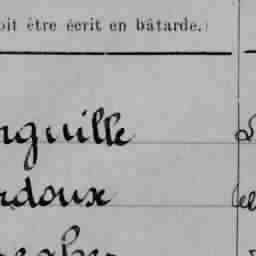 oit être écrit en bâtarde.
nguille
rdoux